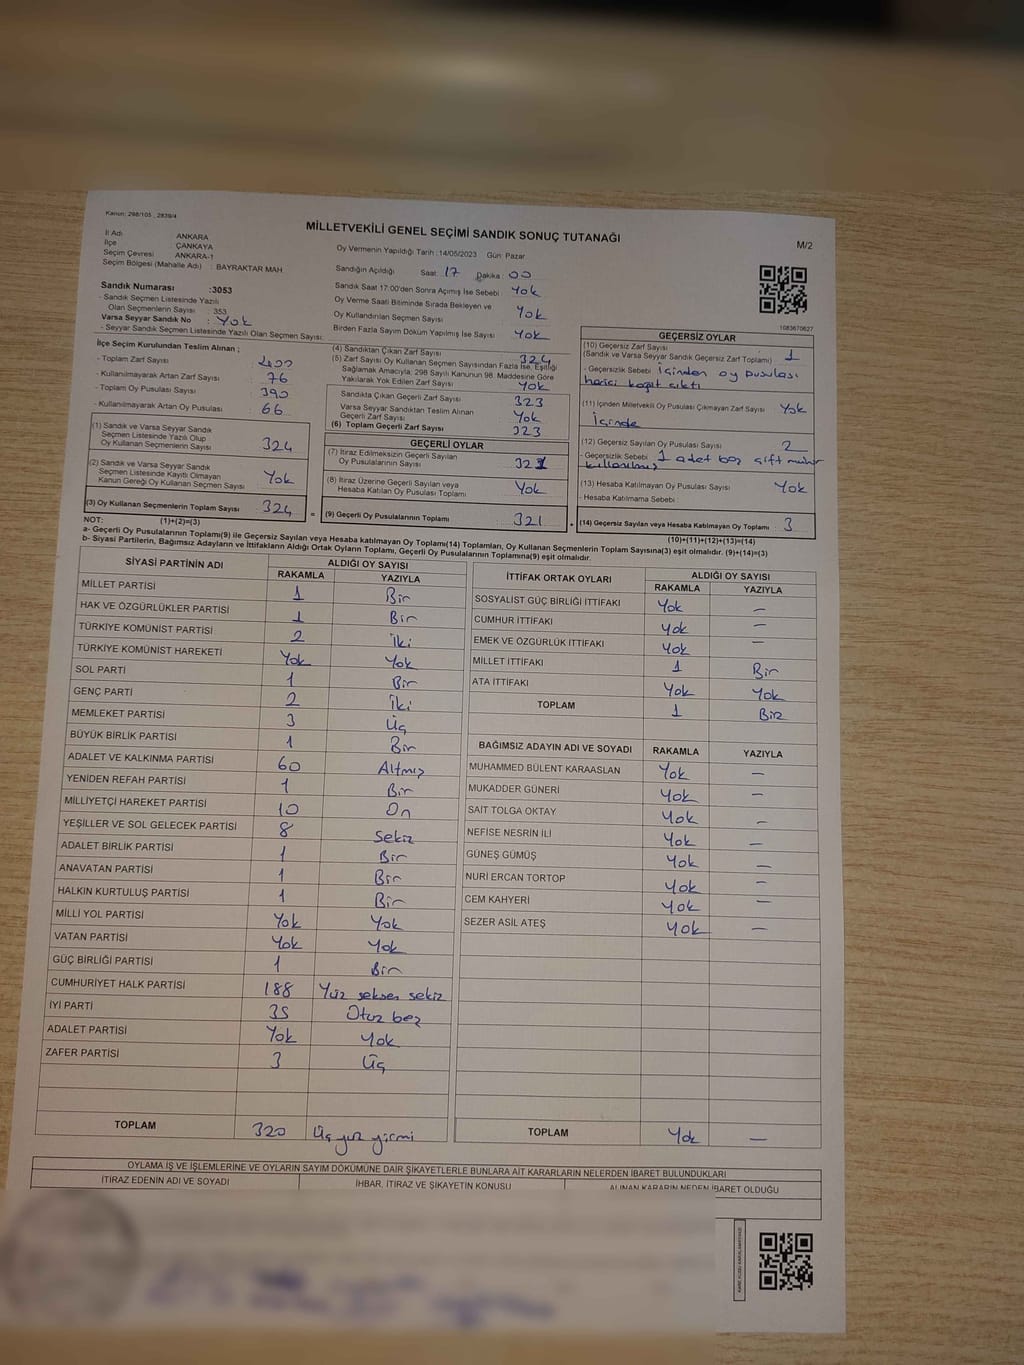 Kanun: 298/105 , 2839/4
MİLLETVEKİLİ GENEL SEÇİMİ SANDIK SONUÇ TUTANAĞI
M/2
İl Adı ANKARA
İlçe ÇANKAYA
Seçim Çevresi ANKARA-1
Seçim Bölgesi (Mahalle Adı) : BAYRAKTAR MAH
Oy Vermenin Yapıldığı Tarih : 14/05/2023 Gün: Pazar
Sandığın Açıldığı Saat: 17 Dakika : 00
Sandık Saat 17:00'den Sonra Açımış İse Sebebi Yok
Oy Verme Saati Bitiminde Sırada Bekleyen ve
Oy Kullandırılan Seçmen Sayısı Yok
Birden Fazla Sayım Döküm Yapılmış İse Sayısı Yok
Sandık Numarası :3053
- Sandık Seçmen Listesinde Yazılı
Olan Seçmenlerin Sayısı : 353
Varsa Seyyar Sandık No : Yok
- Seyyar Sandık Seçmen Listesinde Yazılı Olan Seçmen Sayısı:
İlçe Seçim Kurulundan Teslim Alınan ;
- Toplam Zarf Sayısı : 400
- Kullanılmayarak Artan Zarf Sayısı : 76
- Toplam Oy Pusulası Sayısı : 390
- Kullanılmayarak Artan Oy Pusulası : 66
(1) Sandık ve Varsa Seyyar Sandık
Seçmen Listesinde Yazılı Olup
Oy Kullanan Seçmenlerin Sayısı : 324
(2) Sandık ve Varsa Seyyar Sandık
Seçmen Listesinde Kayıtlı Olmayan
Kanun Gereği Oy Kullanan Seçmen Sayısı : Yok
(3) Oy Kullanan Seçmenlerin Toplam Sayısı : 324
(1)+(2)=(3)
(4) Sandıktan Çıkan Zarf Sayısı : 324
(5) Zarf Sayısı Oy Kullanan Seçmen Sayısından Fazla İse, Eşitliği
Sağlamak Amacıyla, 298 Sayılı Kanunun 98. Maddesine Göre
Yakılarak Yok Edilen Zarf Sayısı : Yok
Sandıkta Çıkan Geçerli Zarf Sayısı : 323
Varsa Seyyar Sandıktan Teslim Alınan
Geçerli Zarf Sayısı : Yok
(6) Toplam Geçerli Zarf Sayısı : 323
GEÇERLİ OYLAR
(7) İtiraz Edilmeksizin Geçerli Sayılan
Oy Pusulalarının Sayısı : 321
(8) İtiraz Üzerine Geçerli Sayılan veya
Hesaba Katılan Oy Pusulası Toplamı : Yok
= (9) Geçerli Oy Pusulalarının Toplamı : 321
1083670627
GEÇERSİZ OYLAR
(10) Geçersiz Zarf Sayısı : 1
(Sandık ve Varsa Seyyar Sandık Geçersiz Zarf Toplamı)
- Geçersizlik Sebebi : İçinden oy pusulası
harici kağıt çıktı
(11) İçinden Milletvekili Oy Pusulası Çıkmayan Zarf Sayısı : Yok
İçinde
(12) Geçersiz Sayılan Oy Pusulası Sayısı : 2
- Geçersizlik Sebebi : 1 adet boş çift mühür
kullanılmış
(13) Hesaba Katılmayan Oy Pusulası Sayısı : Yok
- Hesaba Katılmama Sebebi :
+ (14) Geçersiz Sayılan veya Hesaba Katılmayan Oy Toplamı : 3
(10)+(11)+(12)+(13)=(14)
NOT:
a- Geçerli Oy Pusulalarının Toplamı(9) ile Geçersiz Sayılan veya Hesaba Katılmayan Oy Toplamı(14) Toplamları, Oy Kullanan Seçmenlerin Toplam Sayısına(3) eşit olmalıdır. (9)+(14)=(3)
b- Siyasi Partilerin, Bağımsız Adayların ve İttifakların Aldığı Ortak Oyların Toplamı, Geçerli Oy Pusulalarının Toplamına(9) eşit olmalıdır.
SİYASİ PARTİNİN ADI ALDIĞI OY SAYISI
RAKAMLA YAZIYLA
MİLLET PARTİSİ 1 Bir
HAK VE ÖZGÜRLÜKLER PARTİSİ 1 Bir
TÜRKİYE KOMÜNİST PARTİSİ 2 İki
TÜRKİYE KOMÜNİST HAREKETİ Yok Yok
SOL PARTİ 1 Bir
GENÇ PARTİ 2 İki
MEMLEKET PARTİSİ 3 Üç
BÜYÜK BİRLİK PARTİSİ 1 Bir
ADALET VE KALKINMA PARTİSİ 60 Altmış
YENİDEN REFAH PARTİSİ 1 Bir
MİLLİYETÇİ HAREKET PARTİSİ 10 On
YEŞİLLER VE SOL GELECEK PARTİSİ 8 Sekiz
ADALET BİRLİK PARTİSİ 1 Bir
ANAVATAN PARTİSİ 1 Bir
HALKIN KURTULUŞ PARTİSİ 1 Bir
MİLLİ YOL PARTİSİ Yok Yok
VATAN PARTİSİ Yok Yok
GÜÇ BİRLİĞİ PARTİSİ 1 Bir
CUMHURİYET HALK PARTİSİ 188 Yüz seksen sekiz
İYİ PARTİ 35 Otuz beş
ADALET PARTİSİ Yok Yok
ZAFER PARTİSİ 3 Üç
TOPLAM 320 Üç yüz yirmi
İTTİFAK ORTAK OYLARI ALDIĞI OY SAYISI
RAKAMLA YAZIYLA
SOSYALİST GÜÇ BİRLİĞİ İTTİFAKI Yok —
CUMHUR İTTİFAKI Yok —
EMEK VE ÖZGÜRLÜK İTTİFAKI Yok —
MİLLET İTTİFAKI 1 Bir
ATA İTTİFAKI Yok Yok
TOPLAM 1 Bir
BAĞIMSIZ ADAYIN ADI VE SOYADI RAKAMLA YAZIYLA
MUHAMMED BÜLENT KARAASLAN Yok —
MUKADDER GÜNERİ Yok —
SAİT TOLGA OKTAY Yok —
NEFİSE NESRİN İLİ Yok —
GÜNEŞ GÜMÜŞ Yok —
NURİ ERCAN TORTOP Yok —
CEM KAHYERİ Yok —
SEZER ASİL ATEŞ Yok —
TOPLAM Yok —
OYLAMA İŞ VE İŞLEMLERİNE VE OYLARIN SAYIM DÖKÜMÜNE DAİR ŞİKAYETLERLE BUNLARA AİT KARARLARIN NELERDEN İBARET BULUNDUKLARI
İTİRAZ EDENİN ADI VE SOYADI İHBAR, İTİRAZ VE ŞİKAYETİN KONUSU ALINAN KARARIN NEDEN İBARET OLDUĞU